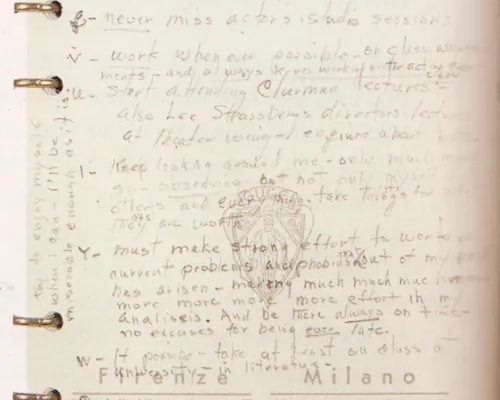 never miss actors studio sessions
v - work whenever possible - on class assign
ments - and always keep working on the acting exer
u - Start attending Clurman lectures -
also Lee Strasberg's directors lectures
at theater wing - enquire about
I - Keep looking around me - only much more
so - observing - but not only myself
others and everything - take things for
they are worth
Y - must make strong effort to work
current problems and phobias out of my
has arisen - making much much much
more more more more more effort in my
analisis. And be there always on time -
no excuses for being ever late.
w - If possible - take at least one class at
university - in literature -
GUCCI
Firenze Milano
try to enjoy myself
when I can - I'll be
miserable enough as it is.